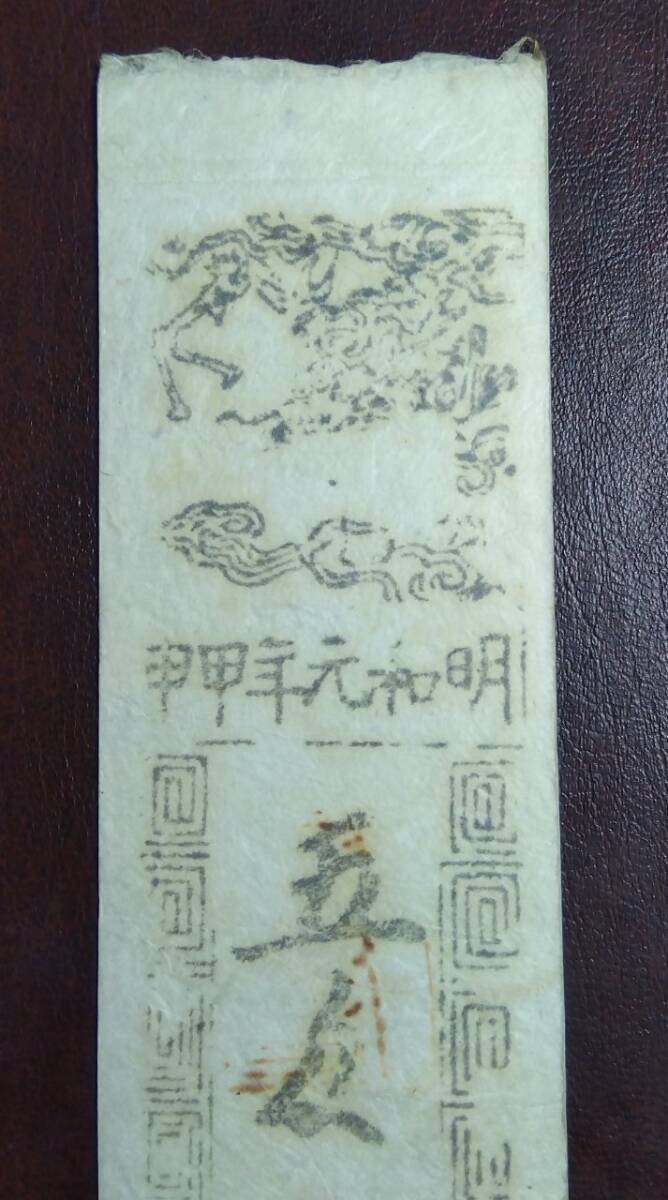 明和元年甲申
五